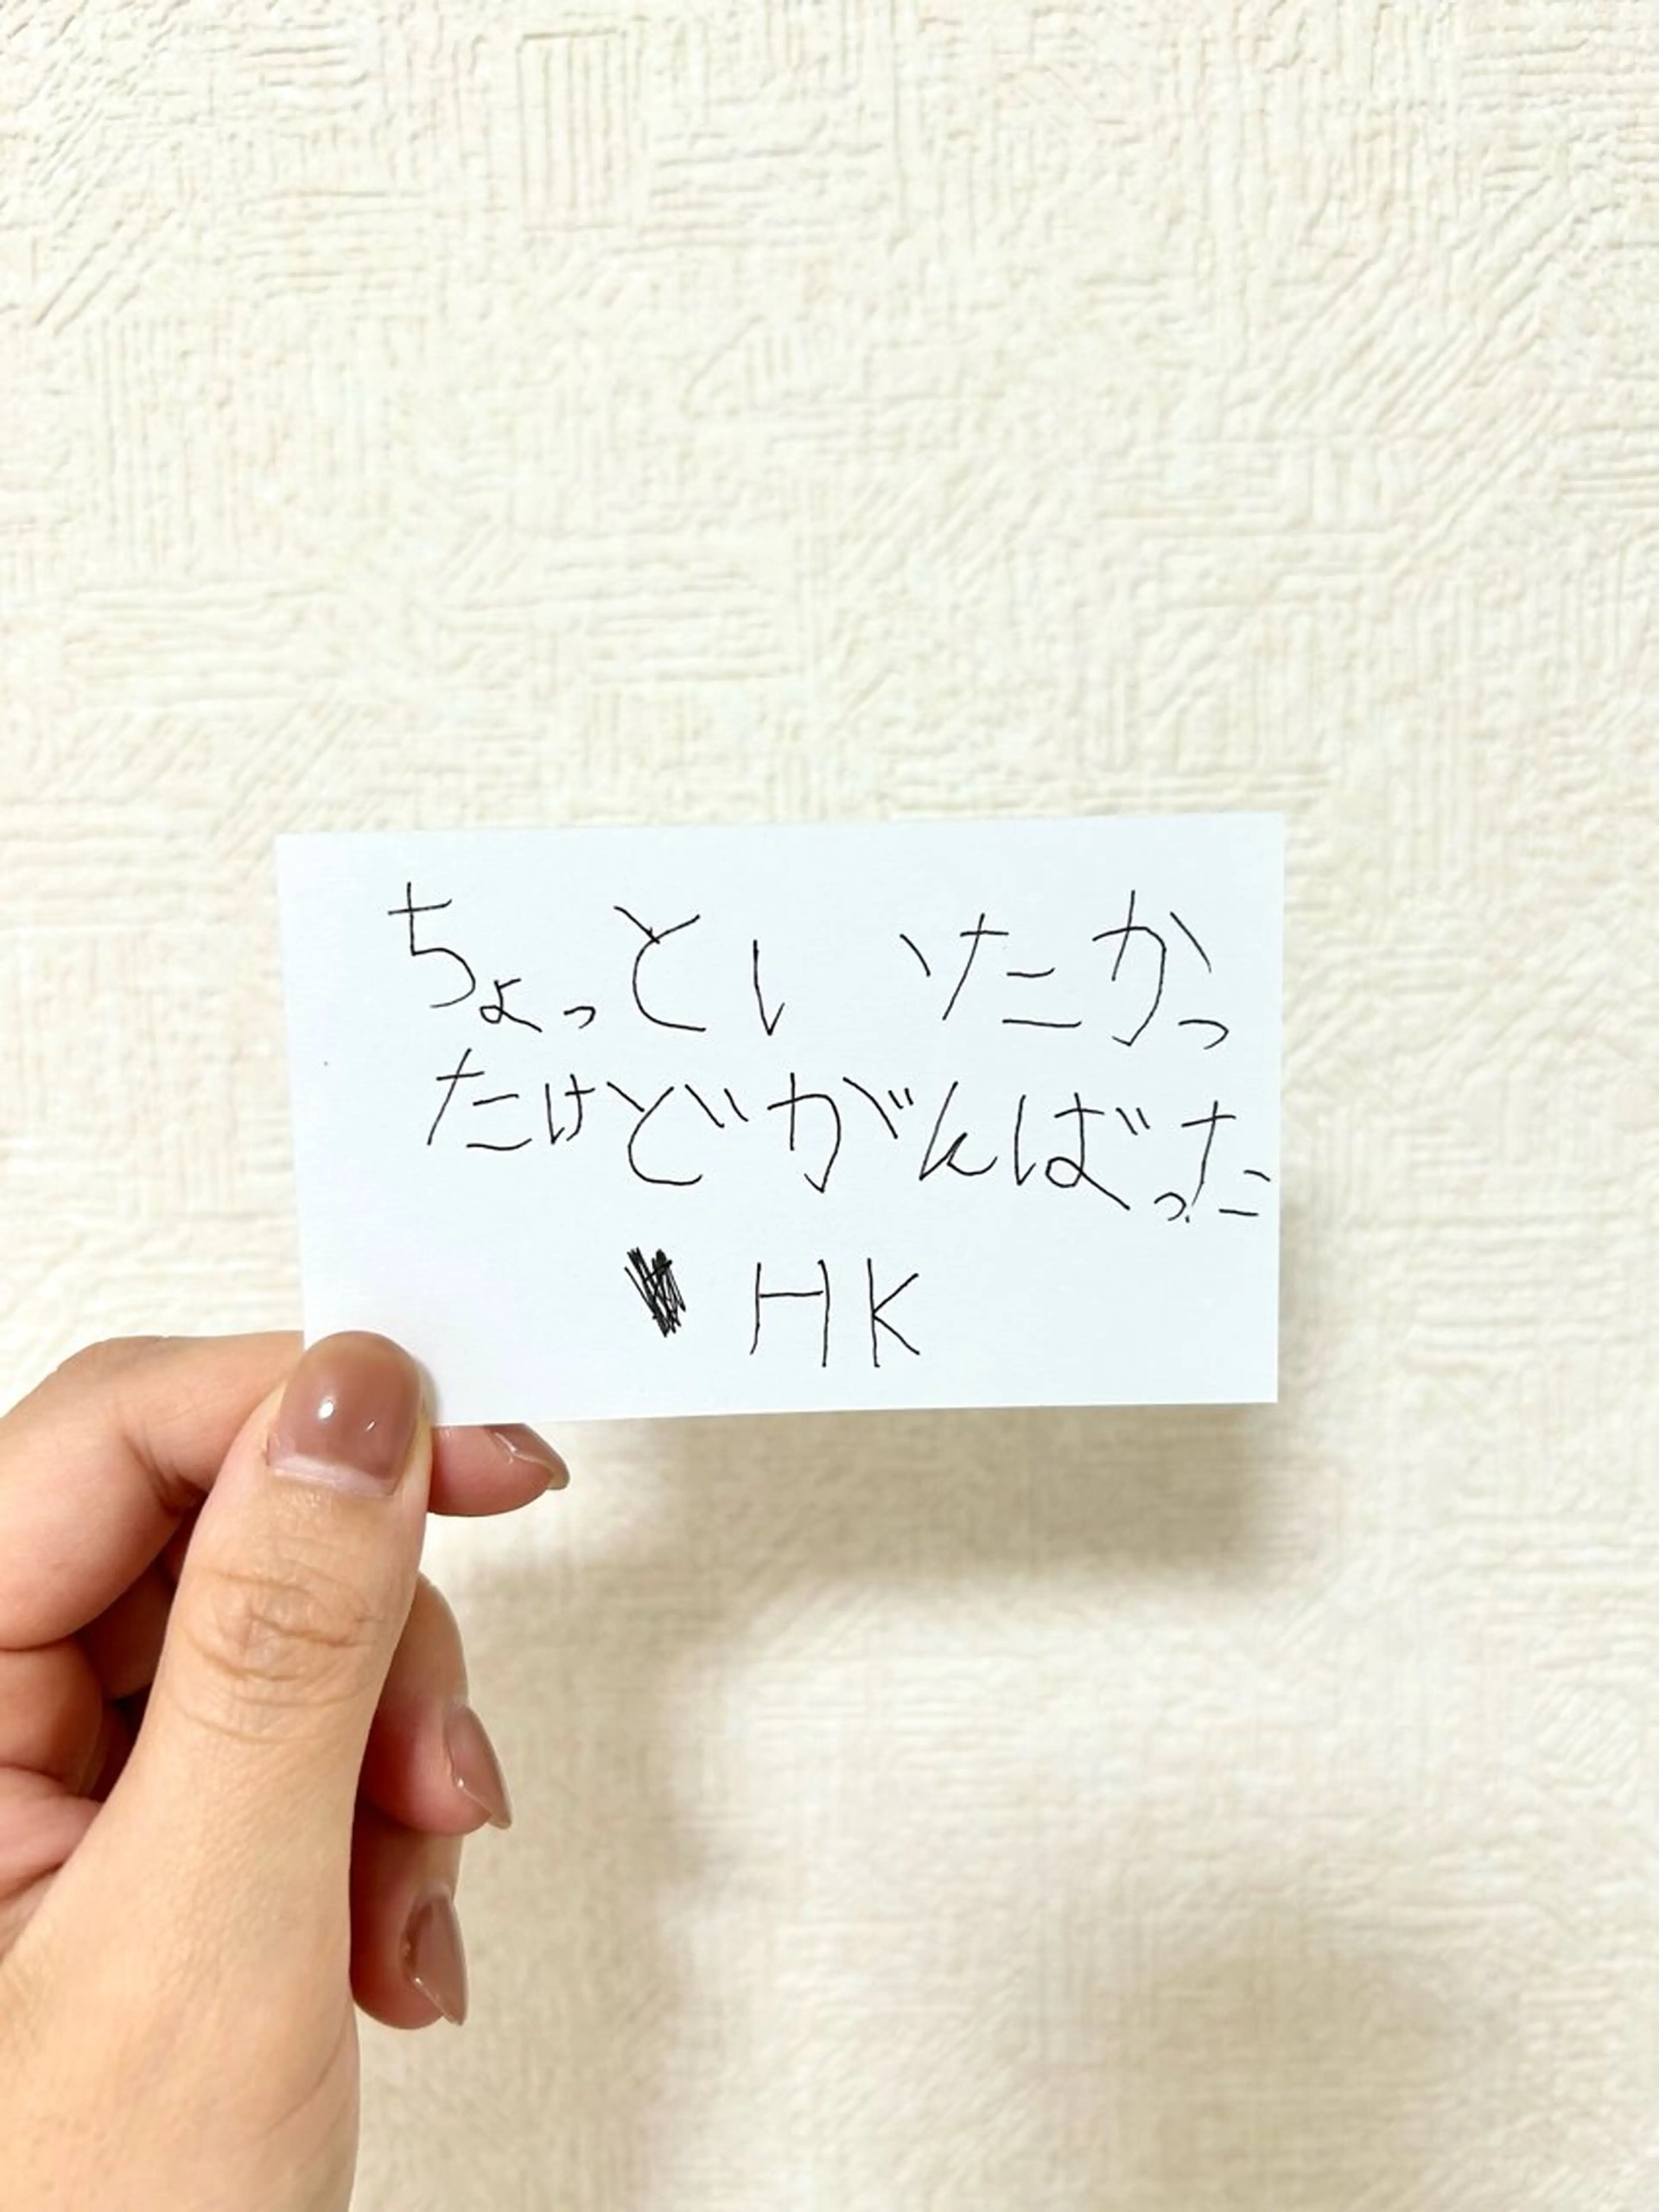 ちょっとい たかっ
たけどがんばった
HK